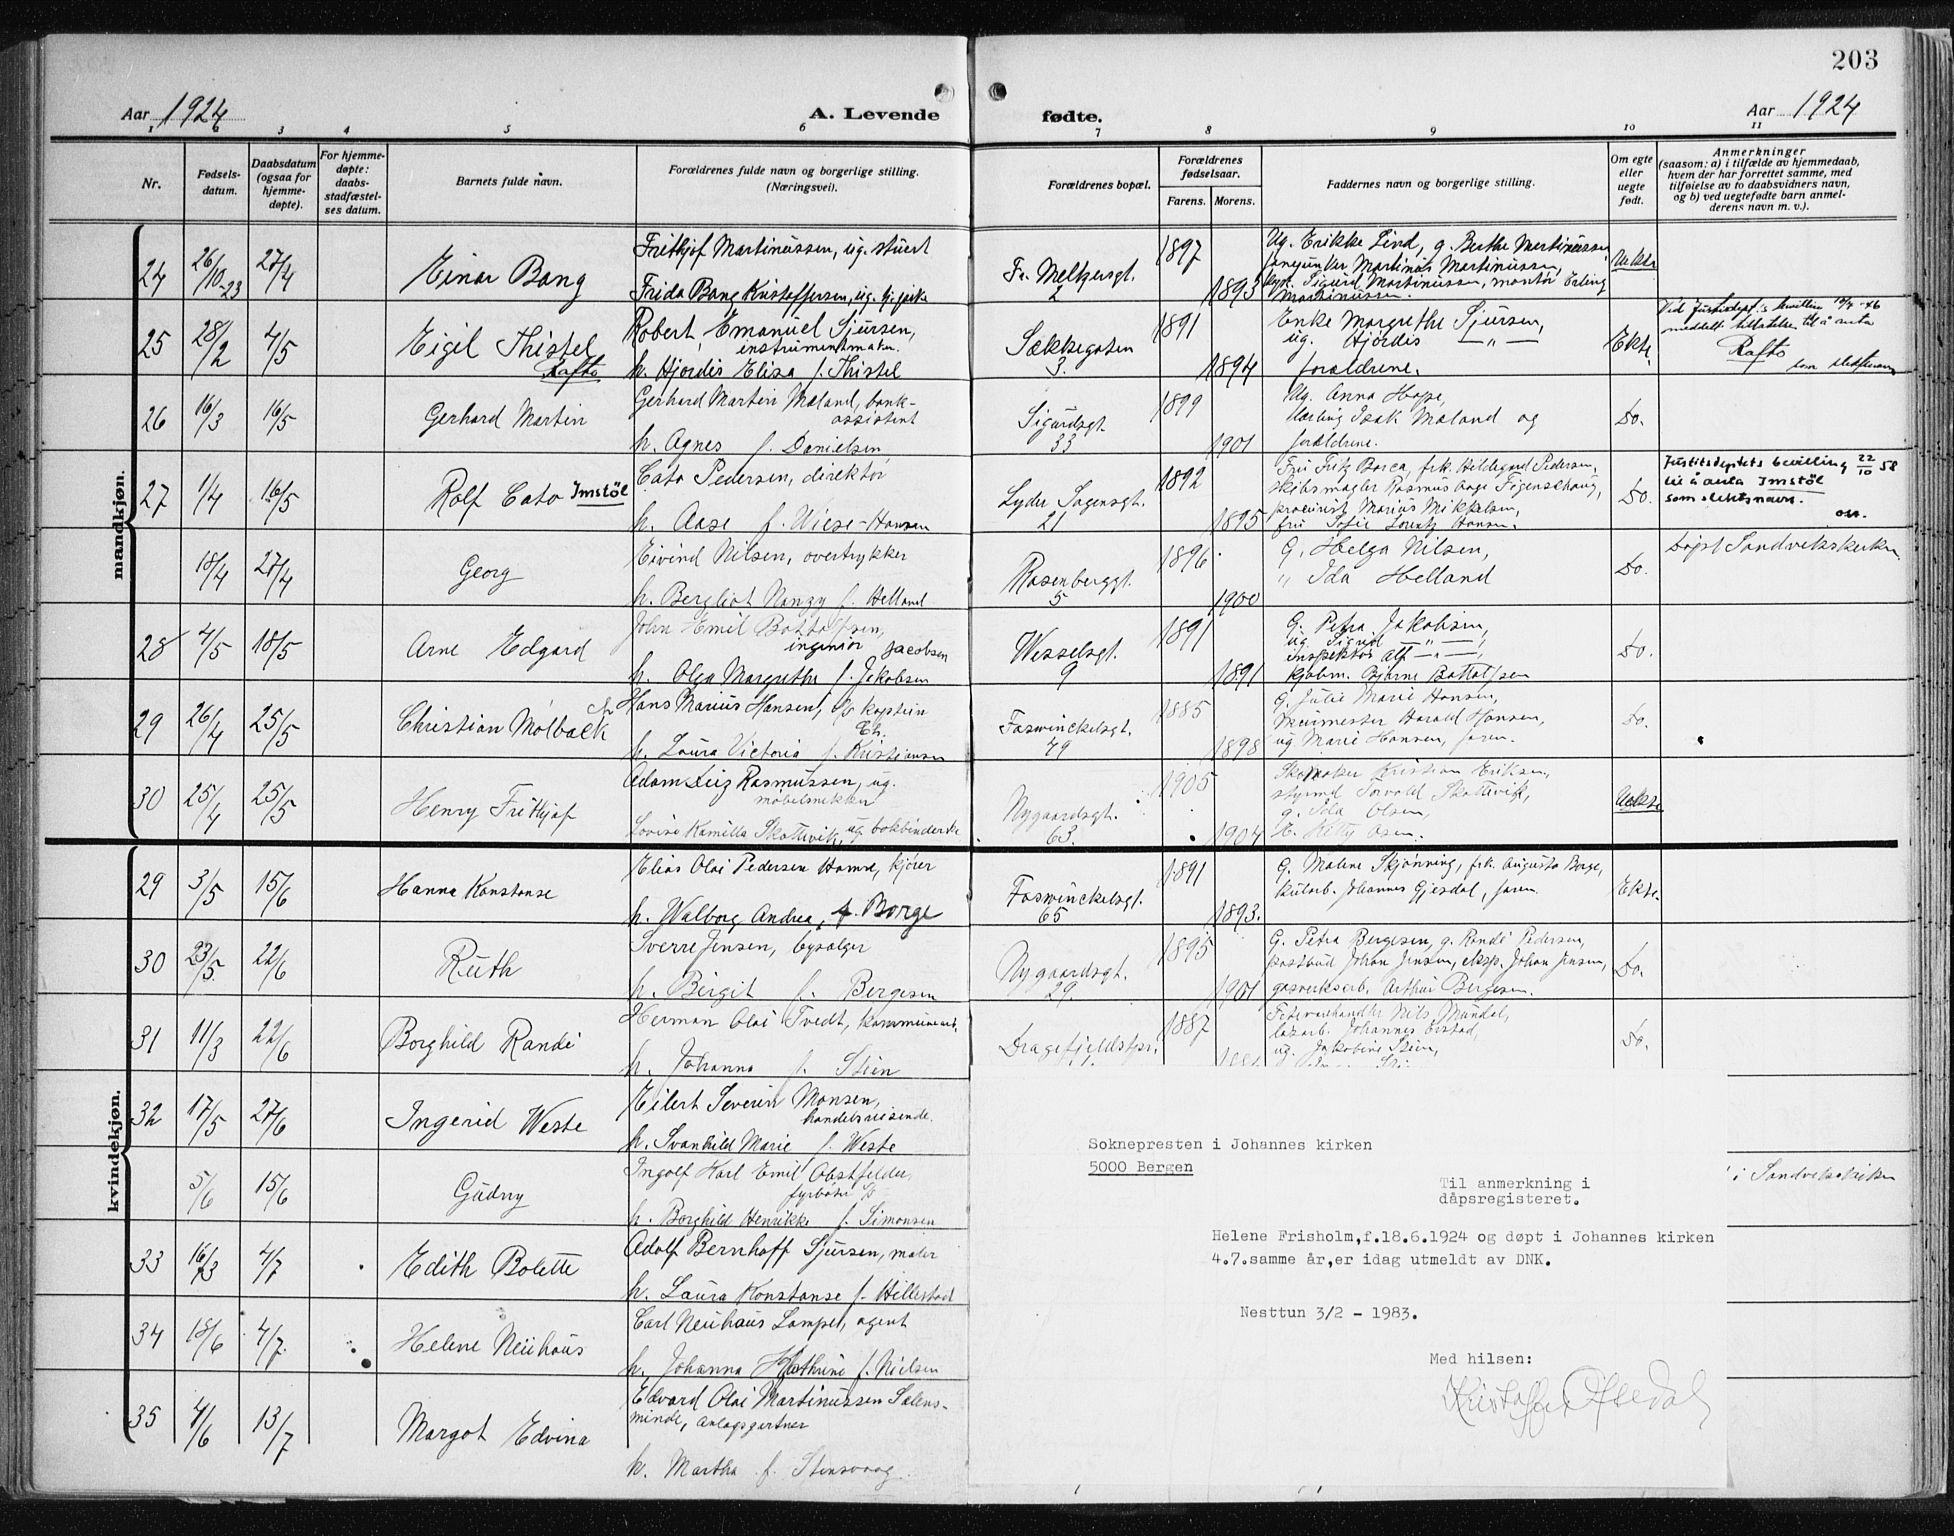 203
Aar 1924
A. Levende
fødte.
Aar 1924
1 2 3 4 5 6 7 8 9 10 11
Nr.
Fødsels-
datum.
Daabsdatum
(ogsaa for
hjemme-
døpte).
For hjemme-
døpte:
daabs-
stadfæstel-
ses datum.
Barnets fulde navn.
Forældrenes fulde navn og borgerlige stilling.
(Næringsvei).
Forældrenes bopæl.
Forældrenes
fødselsaar.
Farens. Morens.
Faddernes navn og borgerlige stilling.
Om egte
eller
uegte
født.
Anmerkninger
(saasom: a) i tilfælde av hjemmedaab,
hvem der har forrettet samme, med
tilføielse av to daabsvidners navn,
og b) ved uegtefødte barn anmel-
derens navn m. v.).
mandkjøn.
24 26/10 23 27/4 Einar Bang
Frithjof Martinussen, ug. stuert
Frida Bang Kristoffersen, ug.
Fr. Meltzersgt.
2
1897
1893
Ug. Erikke Lind, g. Berthe Martinussen
Martinus Martinussen,
Sigurd Martinussen, montør Erling
Martinussen.
Uekte
25 28/2 4/5 Eigil Thistel
Rafto
Robert Emanuel Sjursen,
instrumentmaker.
h. Hjordis Eliza f. Thistel
Sækkegaten
3.
1891
1894
Enke Margrethe Sjursen,
ug. Hjørdis — " —
forældrene.
Ekte.
meddelt tillatelse til å anta
Rafto
som slektsnavn
26 16/3 16/5 Gerhard Martin
Gerhard Martin Mæland, bank-
assistent
h. Agnes f. Danielsen
Sigurdsgt.
33
1899
1901
Ug. Anna Hope,
Isak Mæland og
forældrene.
Do.
27 1/4 16/5 Rolf Cato Imstöl
Cato Pedersen, direktør
h. Aase f. Wiese-Hansen
Lyder Sagensgt.
21
1892
1895
Fru Fritz Borca, frk. Hildegard Pedersen,
skibsmægler Rasmus Aage Figenschoug,
prokurist Marius Mikkelsen,
fru Sofie Lorentz Hansen.
Do.
Justitsdeptets bevilling 22/10 58
til å anta Imstöl
som slektsnavn.
18/4 27/4 Georg
Eivind Nilsen, overtrykker
h. Bergliot Nanzy f. Helland
Rosenberggt.
5
1896
1900
G. Helga Nilsen,
" Ida Helland
Do.
Døpt Sandvikskirken
28 4/5 18/5 Arne Edgard
John Emil Bottolfsen,
ingeniør Jacobsen
h. Olga Margrethe f. Jakobsen
Wesselsgt.
9
1891
1891
G. Petra Jakobsen,
ug. Sigrid — " —,
inspektør Alf — " —,
kjøbm. Bjarne Bottolfsen
Do.
29 26/4 25/5 Christian Molback
Hans Marius Hansen, kaptein
Ch.
h. Laura Victoria f. Kristiansen
Foswinckelsgt.
49
1885
1898
G. Julie Marie Hansen,
Murmester Harald Hansen,
ug Marie Hansen, faren.
Do.
30 25/4 25/5 Henry Frithjof
Adam Rasmussen, ug.
møbelsnekker
Lovise Kamilla Skottevik, ug bokbinderske
Nygaardsgt.
63.
1905
1904
Skomaker Kristian Eriksen,
styrmd Torvald Skottevik,
g. Ida Olsen,
Uekte
kvindekjøn.
29 3/5 15/6 Hanna Konstanse
Elias Olai Pedersen Hamre, kjører
h. Walborg Andrea, f. Borge
Foswinckelsgt.
65
1891
1893.
G. Malene Skjønning, frk. Augusta Borge,
kularb. Johannes Gjesdal, faren.
Ekte.
30 23/5. 22/6 Ruth
Sverre Jensen, bysælger
h. Birgit f. Bergesen
Nygaardsgt.
29.
1895
1901
G. Petra Bergesen, g. Randi Pedersen,
postbud Johan Jensen, eksp. Johan Jensen,
gasverksarb. Arthur Bergesen.
Do.
31 11/3 22/6 Borghild Randi
Herman Olai Tvedt, kommunearb.
h. Johanna f. Stien
Dragefjeldstpr.
1887
Fetevarehandler Nils Mundal,
Johannes Erstad,
ug. Jakobine Stien,
Do.
32 17/5 27/6 Ingerid Weste
Eilert Severin Monsen,
handelsreisende.
h. Svanhild Marie f. Weste
5/6 15/6 Gudny
Ingolf Karl Emil Obstfelder,
fyrbøter
h. Borghild Henrikke f. Simonsen
i Sandvikskirken
33 16/3 4/7 Edith Bolette
Adolf Bernhoff Sjursen, maler
h. Laura Konstanse f. Hillestad
34 18/6 4/7. Helene Neuhaus
Carl Neuhaus Lampe, agent
h. Johanna Kathrine f. Nielsen
35 4/6 13/7 Margot Edvina
Edvard Olai Martinussen Solens-
minde, anlagsgartner
h. Martha f. Stensvaag
Soknepresten i Johannes kirken
5000 Bergen
Til anmerkning i
dåpsregisteret.
Helene Frisholm,f.18.6.1924 og døpt i Johannes kirken
4.7.samme år,er idag utmeldt av DNK.
Nesttun 3/2 - 1983.
Med hilsen:
Kristoffer Oftedal